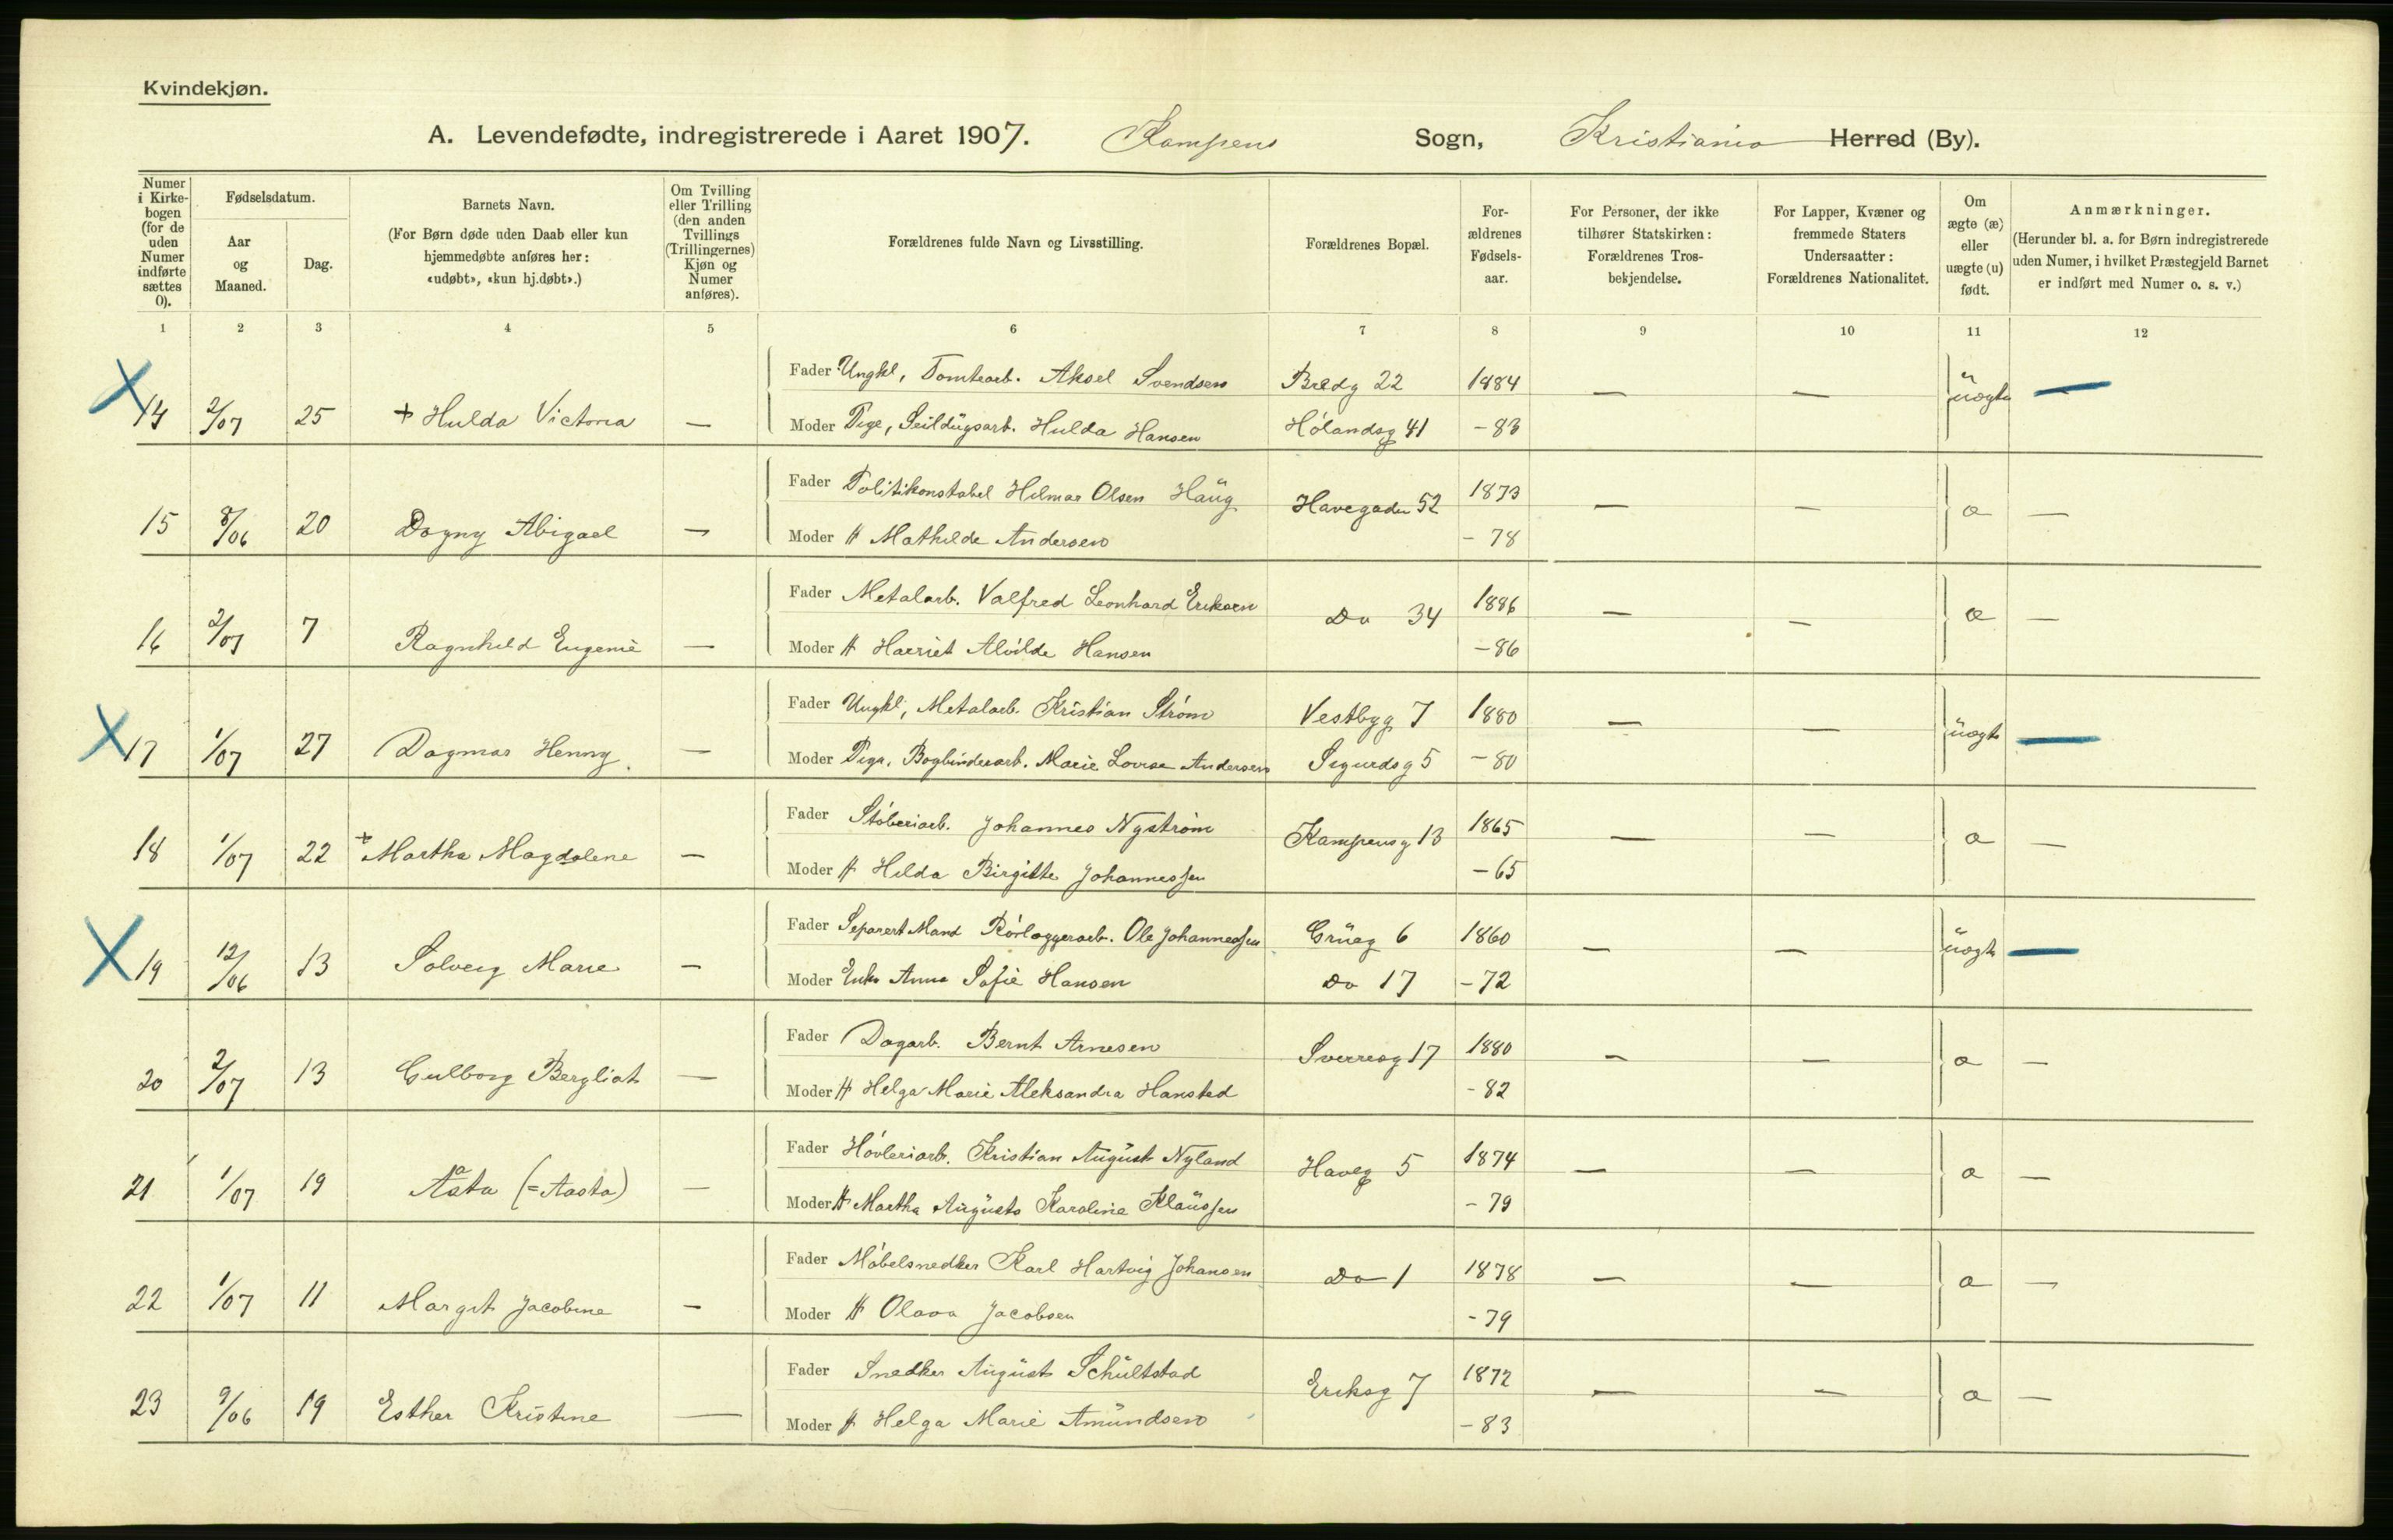 Kvindekjøn.
A. Levendefødte, indregistrerede i Aaret 1907. Kampens Sogn, Kristiania Herred (By).
Numer i Kirkebogen (for de uden Numer indførte sættes 0).
Fødselsdatum.
Aar og Maaned.
Dag.
Barnets Navn.
(For Børn døde uden Daab eller kun hjemmedøbte anføres her: «udøbt», «kun hj.døbt».)
Om Tvilling eller Trilling (den anden Tvillings (Trillingernes) Kjøn og Numer anføres).
Forældrenes fulde Navn og Livsstilling.
Forældrenes Bopæl.
Forældrenes Fødselsaar.
For Personer, der ikke tilhører Statskirken: Forældrenes Trosbekjendelse.
For Lapper, Kvæner og fremmede Staters Undersaatter: Forældrenes Nationalitet.
Om ægte (æ) eller uægte (u) født.
Anmærkninger.
(Herunder bl. a. for Børn indregistrerede uden Numer, i hvilket Præstegjeld Barnet er indført med Numer o. s. v.)
1 2 3 4 5 6 7 8 9 10 11 12
Fader Ungkl, Tomtearb. Aksel Svendsen Bredg 22 1884 — — uægte —
14 2/07 25 + Hulda Victoria — Moder Pige, Seildugsarb. Hulda Hansen Hølandsg 41 - 83
Fader Politikonstabel Hilmar Olsen Haug Havegaden 52 1873 — — æ —
15 8/06 20 Dagny Abigael — Moder H Mathilde Andersen - 78
Fader Metalarb. Valfred Leonhard Eriksen Do 34 1886 — — æ —
16 2/07 7 Ragnhild Eugenie — Moder H Harriet Alvilde Hansen - 86
Fader Ungkl, Metalarb. Kristian Strøm Vestbyg 7 1880 — — uægte —
17 1/07 27 Dagmar Henny — Moder Pige, Bogbinderarb. Marie Lovise Andersen Sigurdsg 5 - 80
Fader Støberiarb. Johannes Nystrøm Kampensg 13 1865 — — æ —
18 1/07 22 + Martha Magdalene — Moder H Hilda Birgitte Johannessen - 65
Fader Separert Mand Rørlæggerarb. Ole Johannessen Grüeg 6 1860 — — uægte —
19 12/06 13 Solveig Marie — Moder Enke Anna Sofie Hansen Do 17 - 72
Fader Dagarb. Bernt Arnesen Sverresg 17 1880 — — æ —
20 2/07 13 Gulborg Bergliot — Moder H Helga Marie Aleksandra Hansted - 82
Fader Høvleriarb. Kristian August Nyland Haveg 5 1874 — — æ —
21 1/07 19 Åsta (=Aasta) — Moder H Martha Augusta Karoline Klaussen - 79
Fader Møbelsnedker Karl Hartvig Johansen Do 1 1878 — — æ —
22 1/07 11 Margit Jacobine — Moder H Olava Jacobsen - 79
Fader Snedker August Schultstad Eriksg 7 1872 — — æ —
23 9/06 19 Esther Kristine — Moder H Helga Marie Amundsen - 83